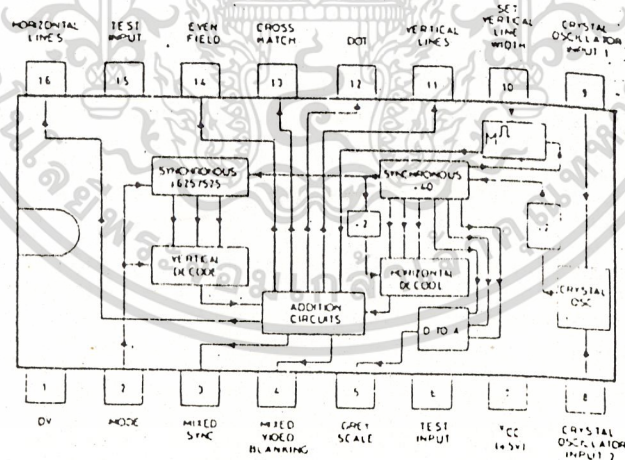 HORIZONTAL LINES
TEST INPUT
EVEN FIELD
CROSS HATCH
DOT
VERTICAL LINES
SET VERTICAL LINE WIDTH
CRYSTAL OSCILLATOR INPUT 1
16
15
14
13
12
11
10
9
SYNCHRONOUS
÷625/525
SYNCHRONOUS
÷40
÷2
÷2
VERTICAL
DECODE
HORIZONTAL
DECODE
ADDITION
CIRCUITS
D TO A
CRYSTAL
OSC
1
2
3
4
5
6
7
8
0V
MODE
MIXED SYNC
MIXED VIDEO BLANKING
GREY SCALE
TEST INPUT
VCC (+5V)
CRYSTAL OSCILLATOR INPUT 2